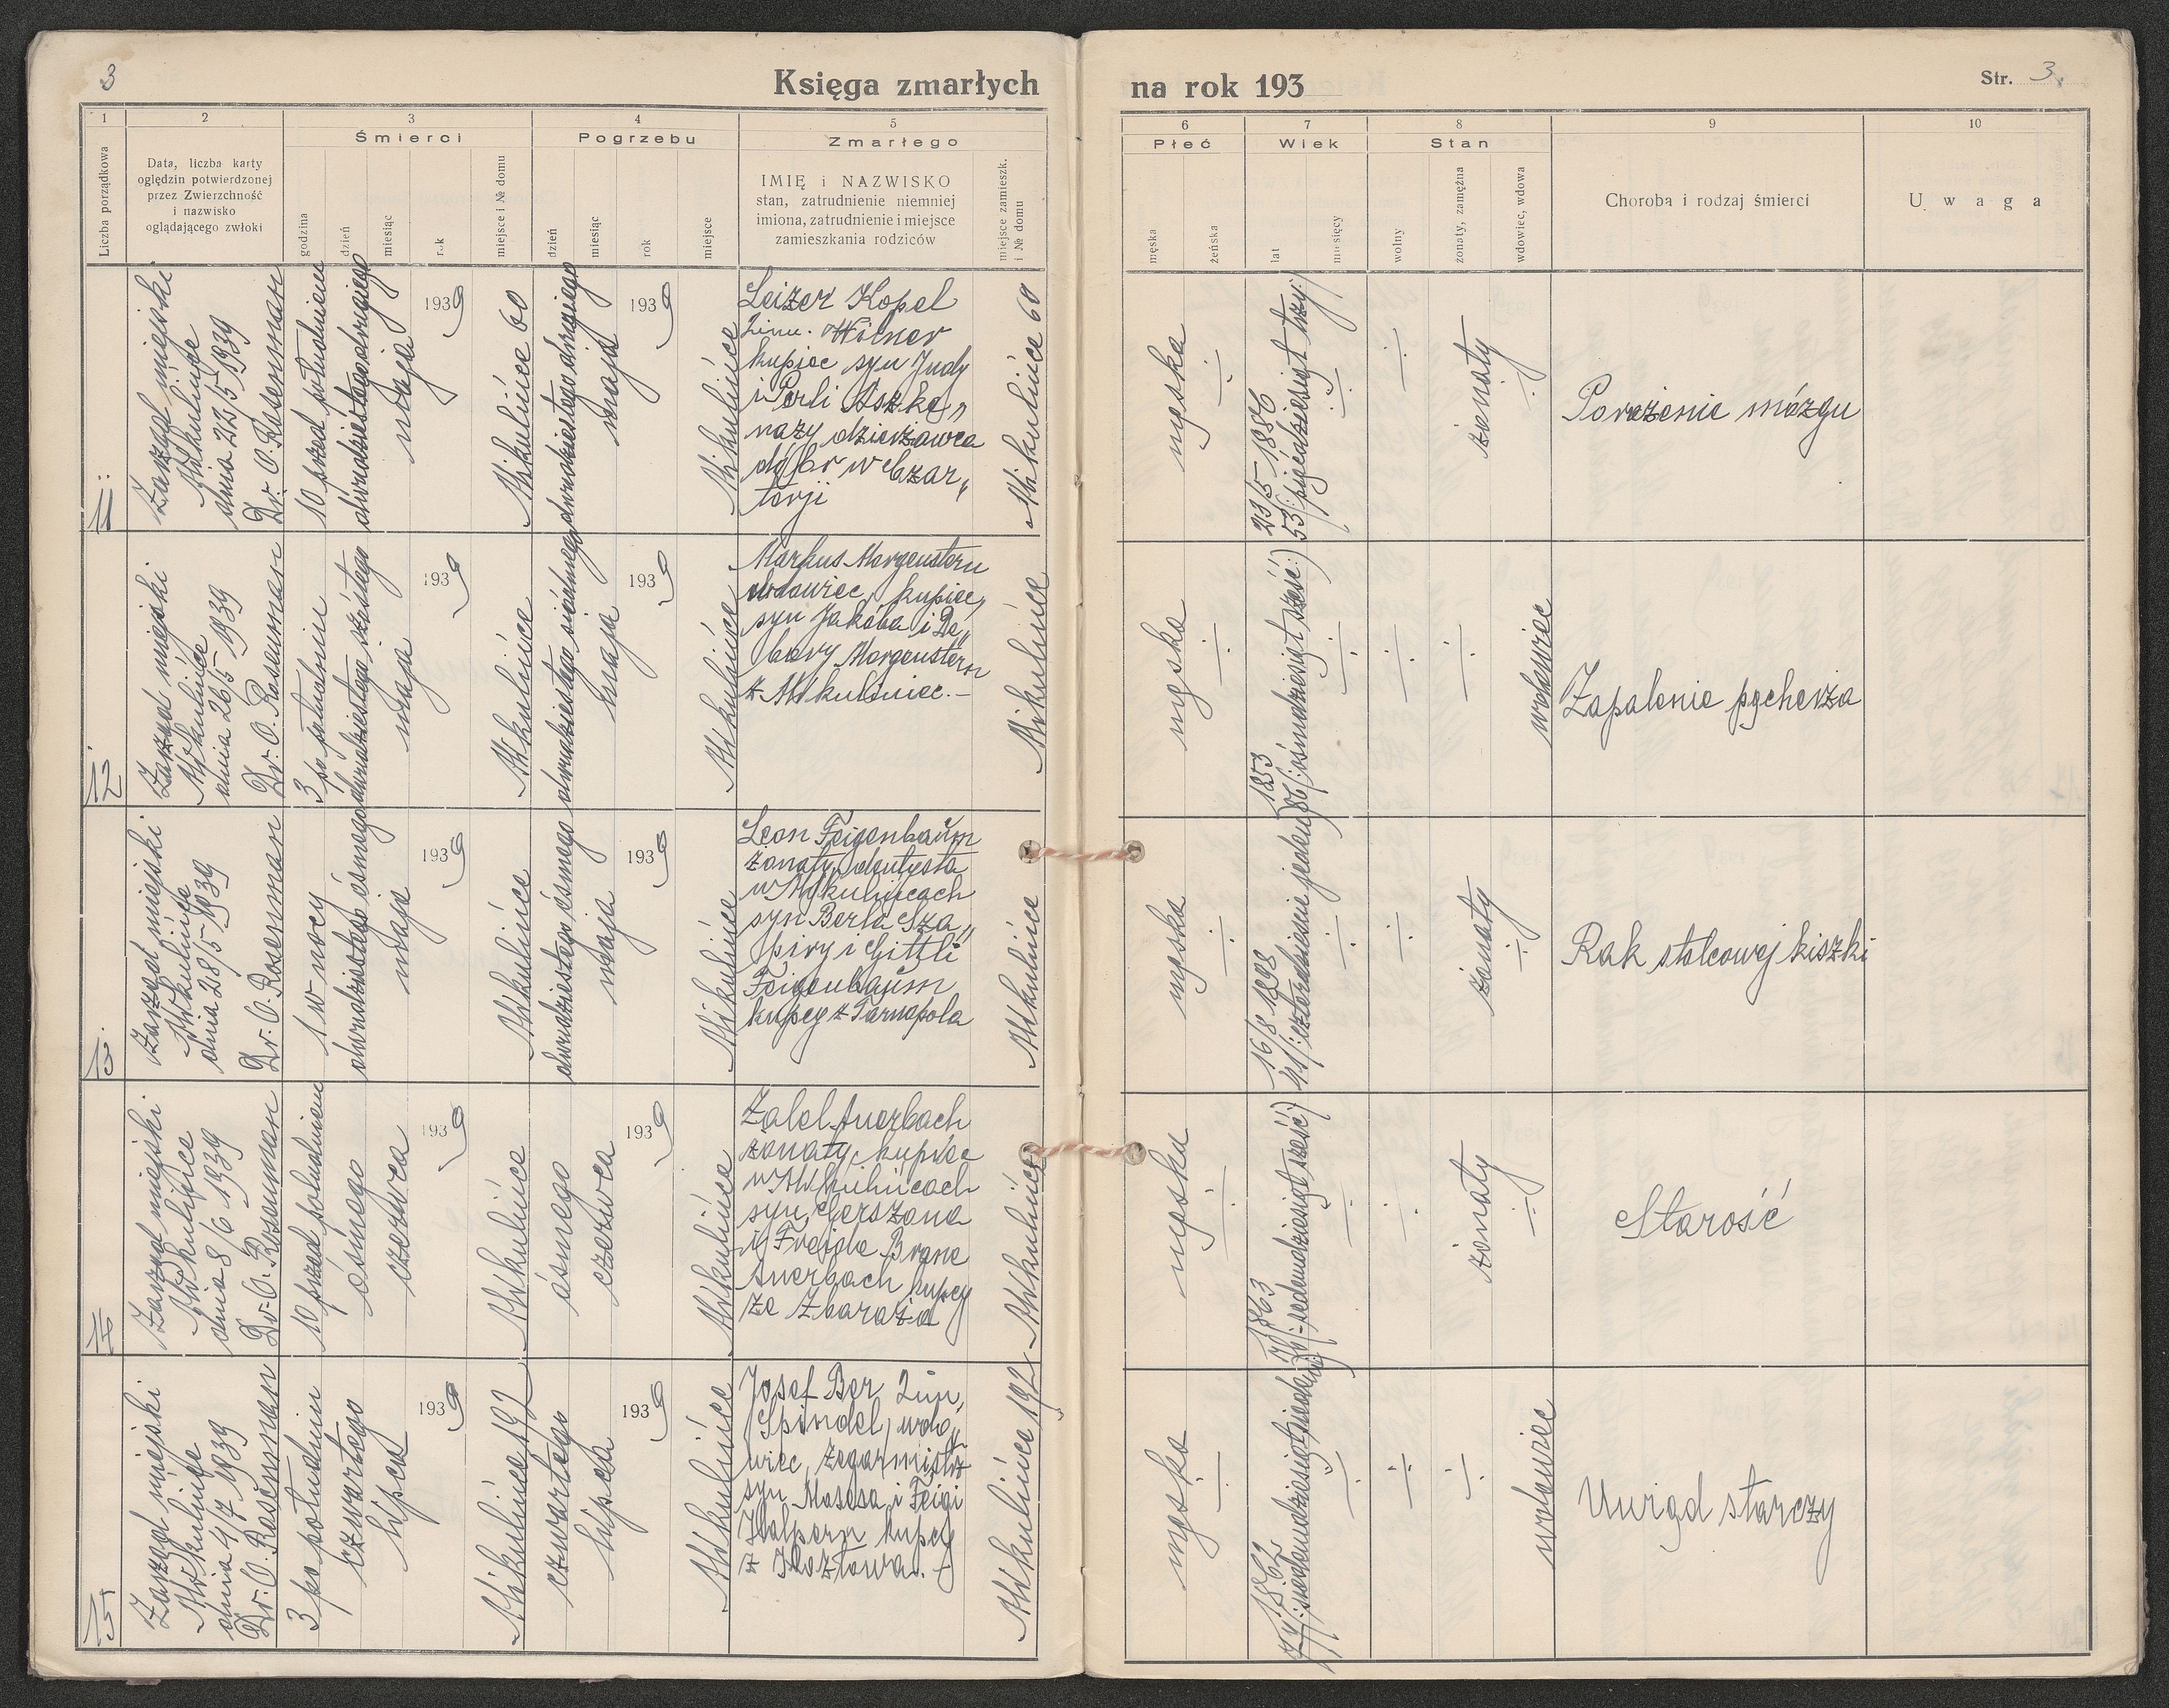 3
Księga zmarłych
na rok 193
Str. 3.
1
2
3
4
5
6
7
8
9
10
Śmierci
Pogrzebu
Zmarłego
Płeć
Wiek
Stan
Liczba porządkowa
Data, liczba karty
oględzin potwierdzonej
przez Zwierzchność
i nazwisko
oglądającego zwłoki
godzina
dzień
miesiąc
rok
miejsce i № domu
dzień
miesiąc
rok
miejsce
IMIĘ i NAZWISKO
stan, zatrudnienie niemniej
imiona, zatrudnienie i miejsce
zamieszkania rodziców
miejsce zamieszk.
i № domu
męska
żeńska
lat
miesięcy
wolny
żonaty, zamężna
wdowiec, wdowa
Choroba i rodzaj śmierci
Uwaga
11
Zarząd miejski
Mikulińce
dnia 22/5 1939
Dr. O. Rosenman
10 przed południem
dwudziestego drugiego
maja
1939
Mikulińce 60
dwudziestego drugiego
maja
1939
Mikulińce
Leizer Kopel
2 imu. Wilner
kupiec syn Judy
i Perli Aszke„
nazy dzierżawca
dóbr w Czar„
torji
Mikulińce 60
męska
÷
23/5 1886
53/:pięćdziesiąt trzy:/
÷
÷
żonaty
÷
Porażenie mózgu
12
Zarząd miejski
Mikulińce
dnia 26/5 1939
Dr. O. Rosenman
3 po południu
dwudziestego szóstego
maja
1939
Mikulińce
dwudziestego siódmego
maja
1939
Mikulińce
Markus Morgenstern
wdowiec, kupiec,
syn Jakóba i De„
bory Morgenstern
z Mikuliniec.-
Mikulińce
męska
÷
1853
86/:ośmdziesiąt sześć:)
÷
÷
÷
wdowiec
Zapalenie pęcherza
13
Zarząd miejski
Mikulińce
dnia 28/5 1939
Dr. O. Rosenman
1 w nocy
dwudziestego ósmego
maja
1939
Mikulińce
dwudziestego ósmego
maja
1939
Mikulińce
Leon Feigenbaum
żonaty, dentysta
w Mikulińcach
syn Berla Sza„
piry i Gittli
Feigenbaum
kupcy z Tarnopola
Mikulińce
męska
÷
16/8 1898
41/:czterdzieście jeden:/
÷
÷
żonaty
÷
Rak stolcowej kiszki
14
Zarząd miejski
Mikulińce
dnia 8/6 1939
Dr. O. Rosenman
10 przed południem
ósmego
czerwca
1939
Mikulińce
ósmego
czerwca
1939
Mikulińce
Zalel Auerbach
żonaty, kupiec
w Mikulińcach
syn Gerszona
i Freide Brane
Auerbach kupcy
ze Zbaraża
Mikulińce
męska
÷
1863
76/:siedemdziesiąt sześć:)
÷
÷
żonaty
÷
Starość
15
Zarząd miejski
Mikulińce
dnia 4/7 1939
Dr. O. Rosenman
3 po południu
czwartego
lipca
1939
Mikulińce 192
czwartego
lipca
1939
Mikulińce
Josef Ber 2 im,
Spindel, wdo„
wiec, zegarmistrz
syn Mosesa i Feigi
Halpern kupcy
z Kozłowa.
Mikulińce 192
męska
÷
1862
÷
÷
÷
wdowiec
Uwiąd starczy